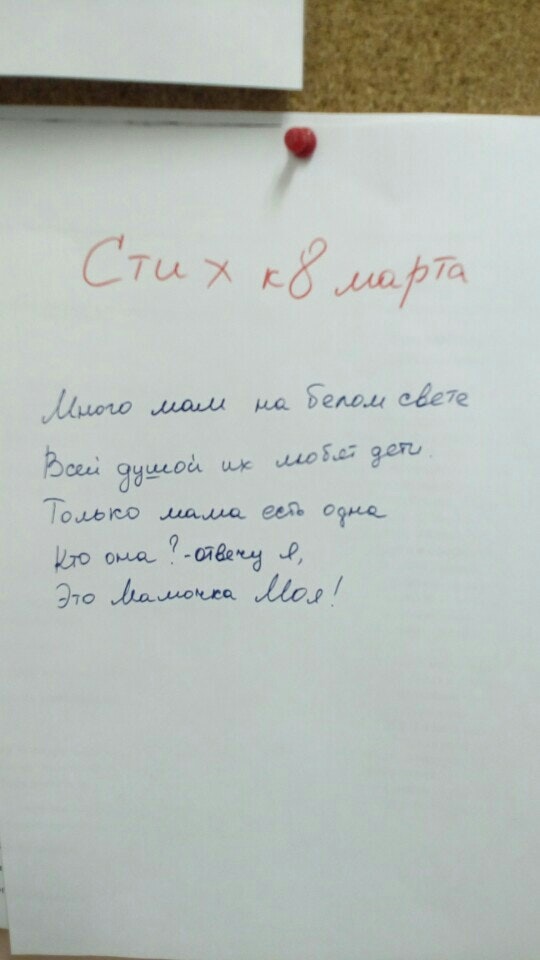 Стих к 8 марта
Много мам на белом свете
Всей душой их любят дети.
Только мама есть одна
Кто она? - отвечу я,
Это Мамочка Моя!